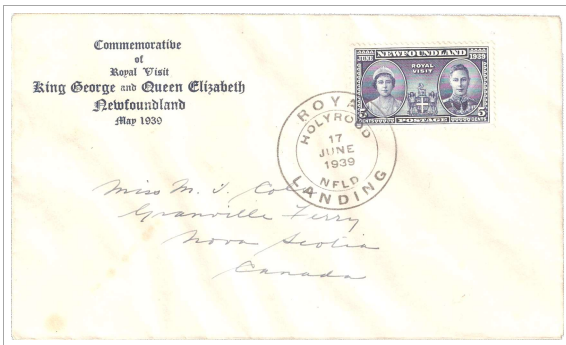 Commemorative
of
Royal Visit
King George and Queen Elizabeth
Newfoundland
May 1939
NEWFOUNDLAND
JUNE 1939
ROYAL
VISIT
5 CENTS POSTAGE 5 CENTS
ROYAL
HOLYROOD
17
JUNE
1939
NFLD
LANDING
Miss M. I.
Granville Ferry
Nova Scotia
Canada